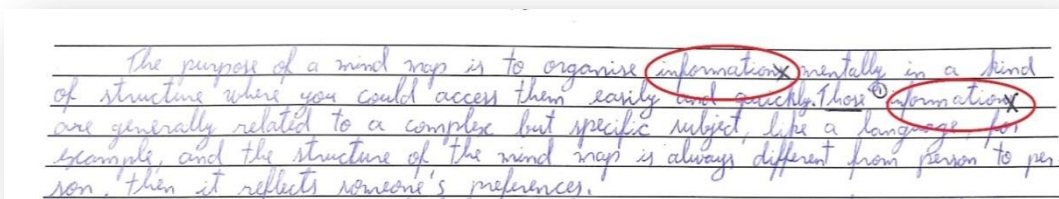 The purpose of a mind map is to organise informations mentally in a kind
of structure where you could access them easily and quickly. Those ① informations
are generally related to a complex but specific subject, like a language for
example, and the structure of the mind map is always different from person to per-
son, then it reflects someone's preferences.